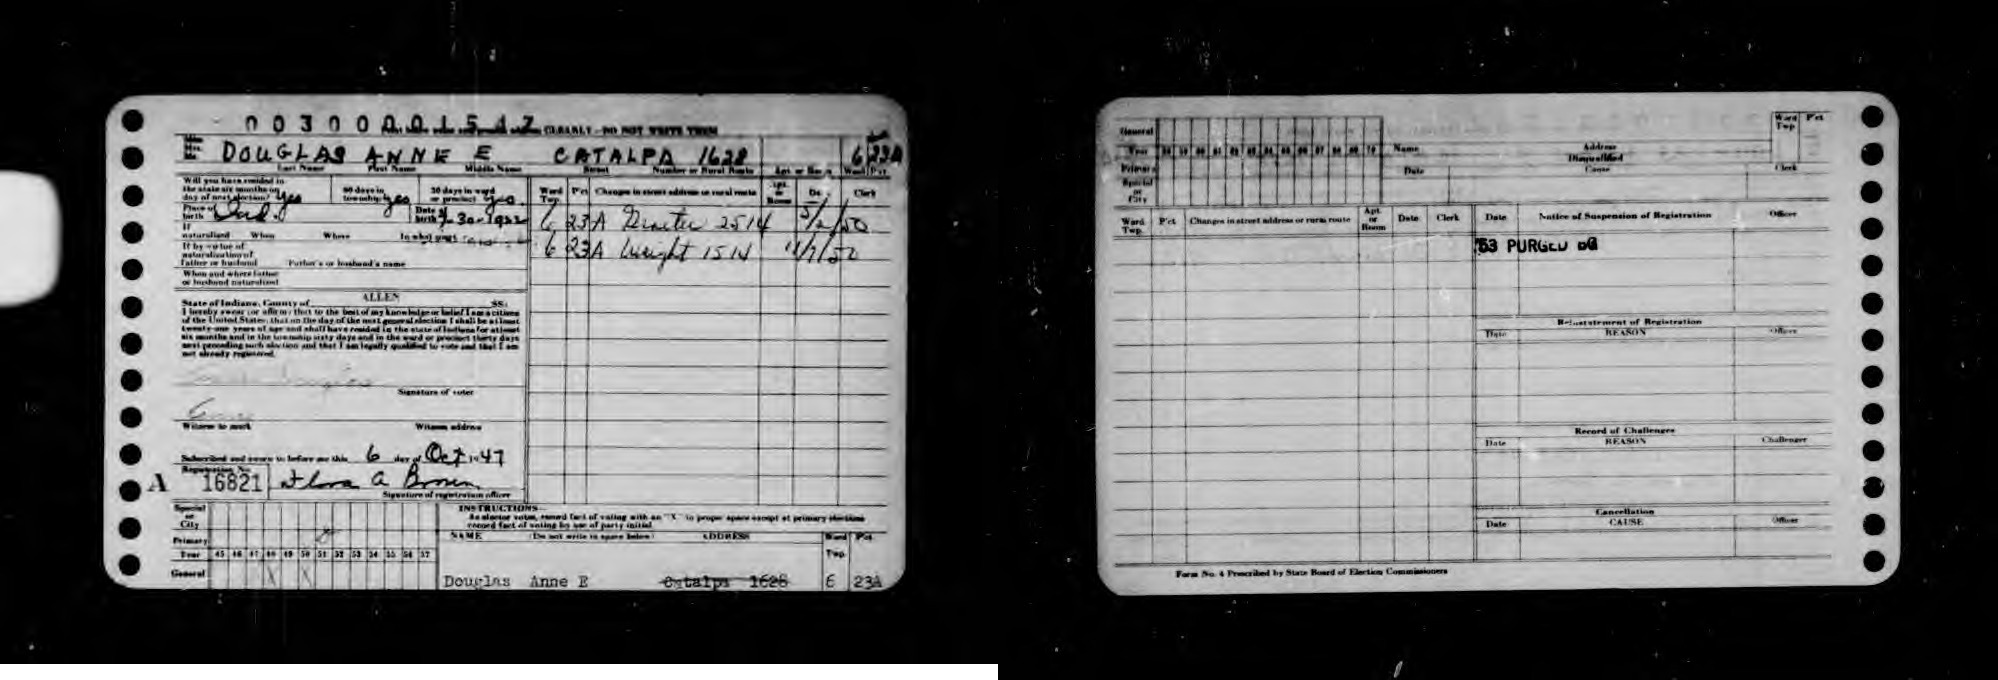 00300001547
CLEARLY - DO NOT WRITE THEM
DOUGLAS ANNE E CATALPA 1628 6 23A
Last Name First Name Middle Name Street Number or Rural Route Apt. or Room Ward Pct
Will you have resided in
the state six months on
day of next election? yes
60 days in
township yes
30 days in ward
or precinct yes
Place of
birth Ind.
Date of
birth
If
naturalized When Where In what court
If by virtue of
naturalization of
father or husband Father's or husband's name
When and where father
or husband naturalized
Ward
Twp.
Pct Changes in street address or rural route
Apt.
or
Room
Clerk
6 23A 2514 5/2/50
6 23A Wright 1514 11/7/52
State of Indiana, County of ALLEN SS:
I hereby swear (or affirm) that to the best of my knowledge or belief I am a citizen
of the United States; that on the day of the next general election I shall be at least
twenty-one years of age and shall have resided in the state of Indiana for at least
six months and in the township sixty days and in the ward or precinct thirty days
next preceding such election and that I am legally qualified to vote and that I am
not already registered.
Signature of voter
Witness to mark Witness address
Subscribed and sworn to before me this 6 day of Oct 1947
Registration No.
A 16821 Flora A Brown
Signature of registration officer
Special
or
City
Primary
Year 45 46 47 48 49 50 51 52 53 54 55 56 57
General X X
INSTRUCTIONS—
As elector votes, record fact of voting with an "X" in proper space except at primary elections
record fact of voting by use of party initial.
NAME (Do not write in space below) ADDRESS Ward Pct
Twp.
Douglas Anne E Catalpa 1628 6 23A
General
Year 58 59 60 61 62 63 64 65 66 67 68 69 70
Primary
Special
or
City
Name Address
Ward
Twp
Pct
Disqualified
Date Cause Clerk
Ward
Twp.
Pct Changes in street address or rural route
Apt.
or
Room
Date Clerk
Date Notice of Suspension of Registration Officer
'53 PURGED
Reinstatement of Registration
Date REASON Officer
Record of Challenges
Date REASON Challenger
Cancellation
Date CAUSE Officer
Form No. 4 Prescribed by State Board of Election Commissioners